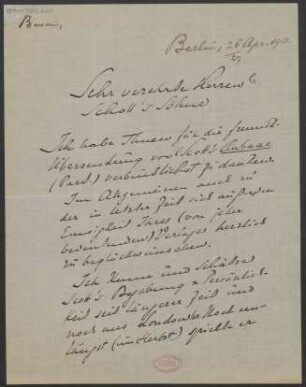 Busoni,
Berlin, 26 Apr. 1911.
Sehr verehrte Herren B.
Schott's Söhne
Ich habe Ihnen für die freundl.
Übersendung von Scott's Aubade
(Part.) verbindlichst zu danken.
Im Allgemeinen auch zu
der in letzter Zeit sich äußernden
Emsigkeit Ihres (von jeher
bedeutenden) Verlages herzlich
zu beglückwünschen.
Ich kenne und schätze
Scott's Begabung & Persönlich-
keit seit längerer Zeit und
noch aus London her. Noch un-
längst (im Herbst) spielte er